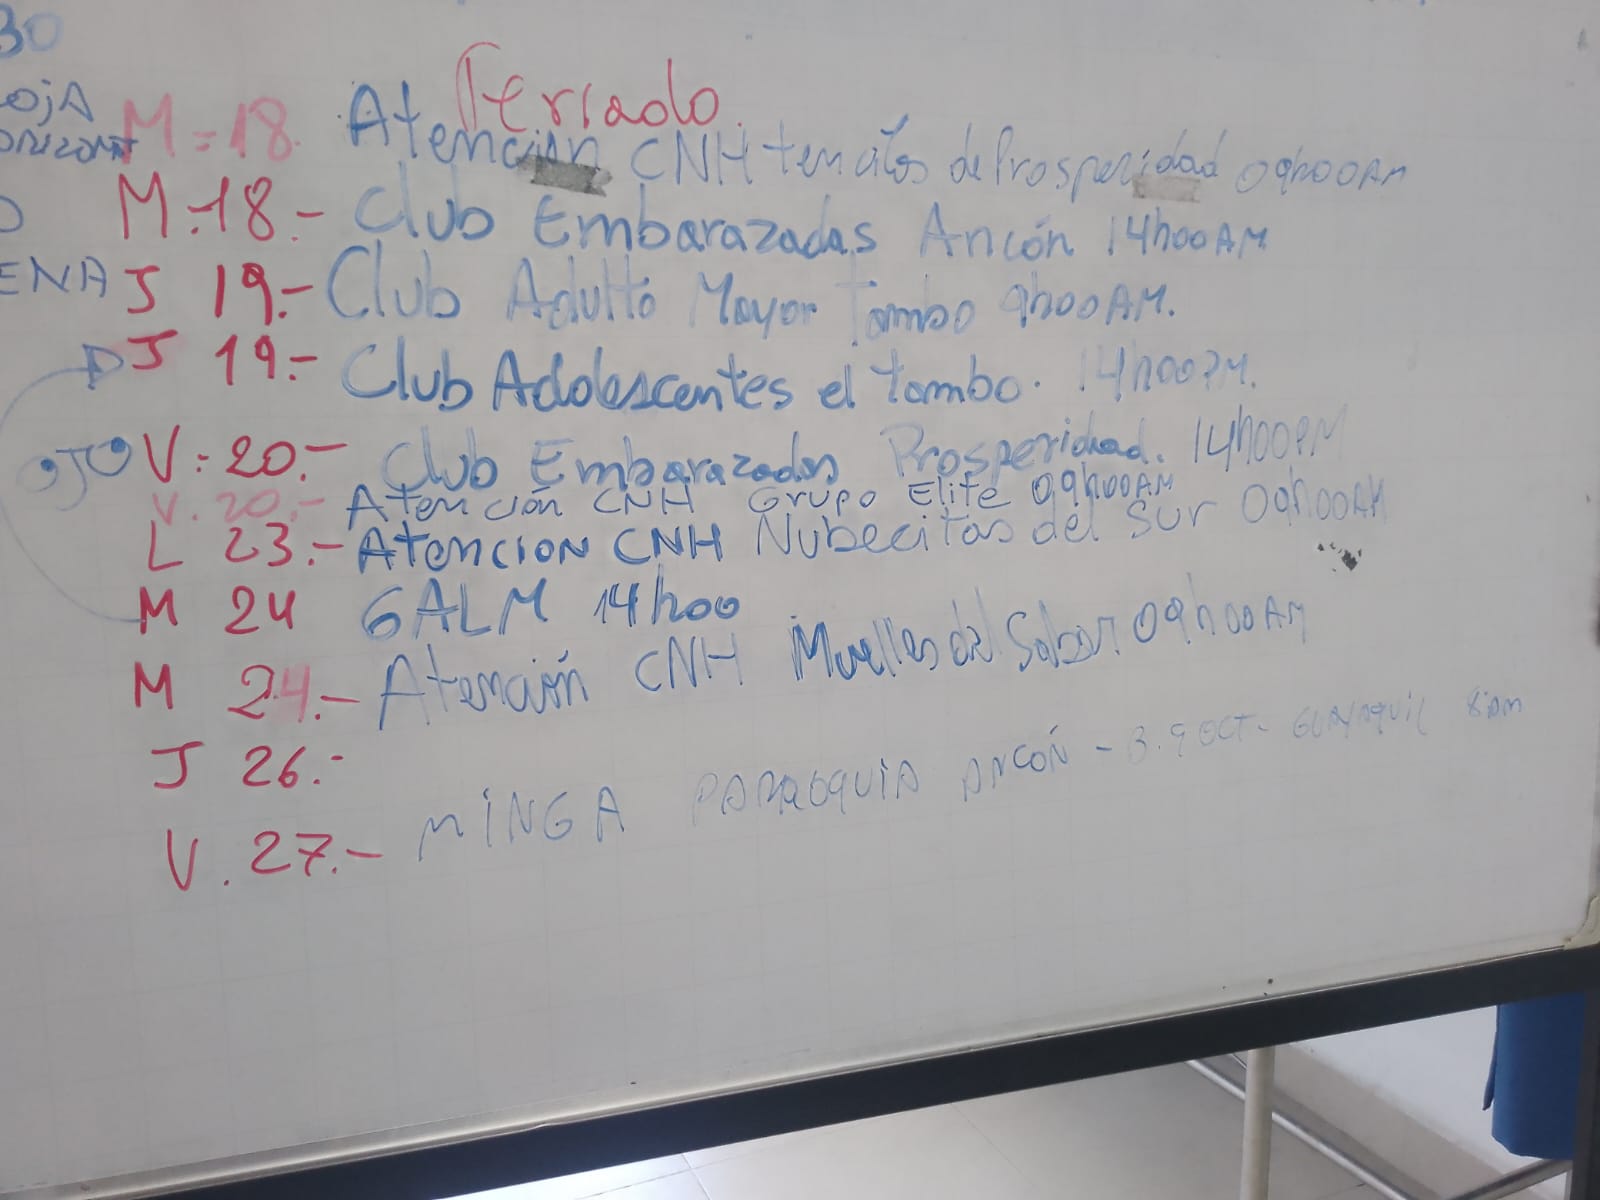 30
OJA
Feriado.
M = 18. Atención CNH de Prosperidad 09h00AM
M-18.- Club Embarazadas Ancón 14h00AM
ENA
J 19.- Club Adulto Mayor Tambo 9h00AM.
J 19.- Club Adolescentes el tambo. 14h00PM.
OJO V: 20.- Club Embarazadas Prosperidad. 14h00PM
V. 20.- Atención CNH Grupo Elite 09h00AM
L 23.- ATENCION CNH Nubecitas del Sur 09h00AM
M 24 GALM 14h00
M 24.- Atención CNH Muelles del Saber 09h00AM
J 26.-
V. 27.- MINGA PARROQUIA ANCÓN - 3.9 OCT- GUAYAQUIL 8:AM